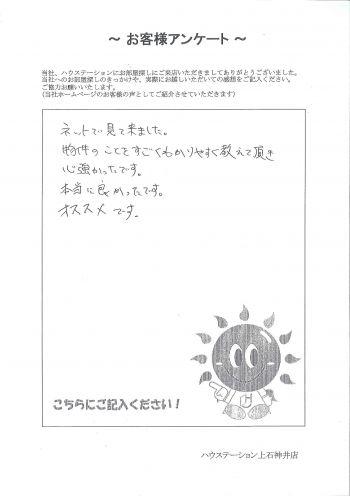 ～ お客様アンケート ～
当社、ハウステーションにお部屋探しにご来店いただきましてありがとうございました。
当社へのお部屋探しのきっかけや、実際にお越しいただいての感想をご記入ください。
ご協力お願いいたします。
(当社ホームページのお客様の声としてご紹介させていただきます)
ネットで見て来ました。
物件のことをすごくわかりやすく教えて頂き
心強かったです。
本当に良かったです。
オススメです。
こちらにご記入ください！
ハウステーション上石神井店